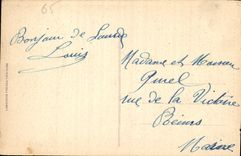 65
Bonjour de Lourdes
Louis
Madame et Monsieur
rue de la Victoire
Reims
Marne